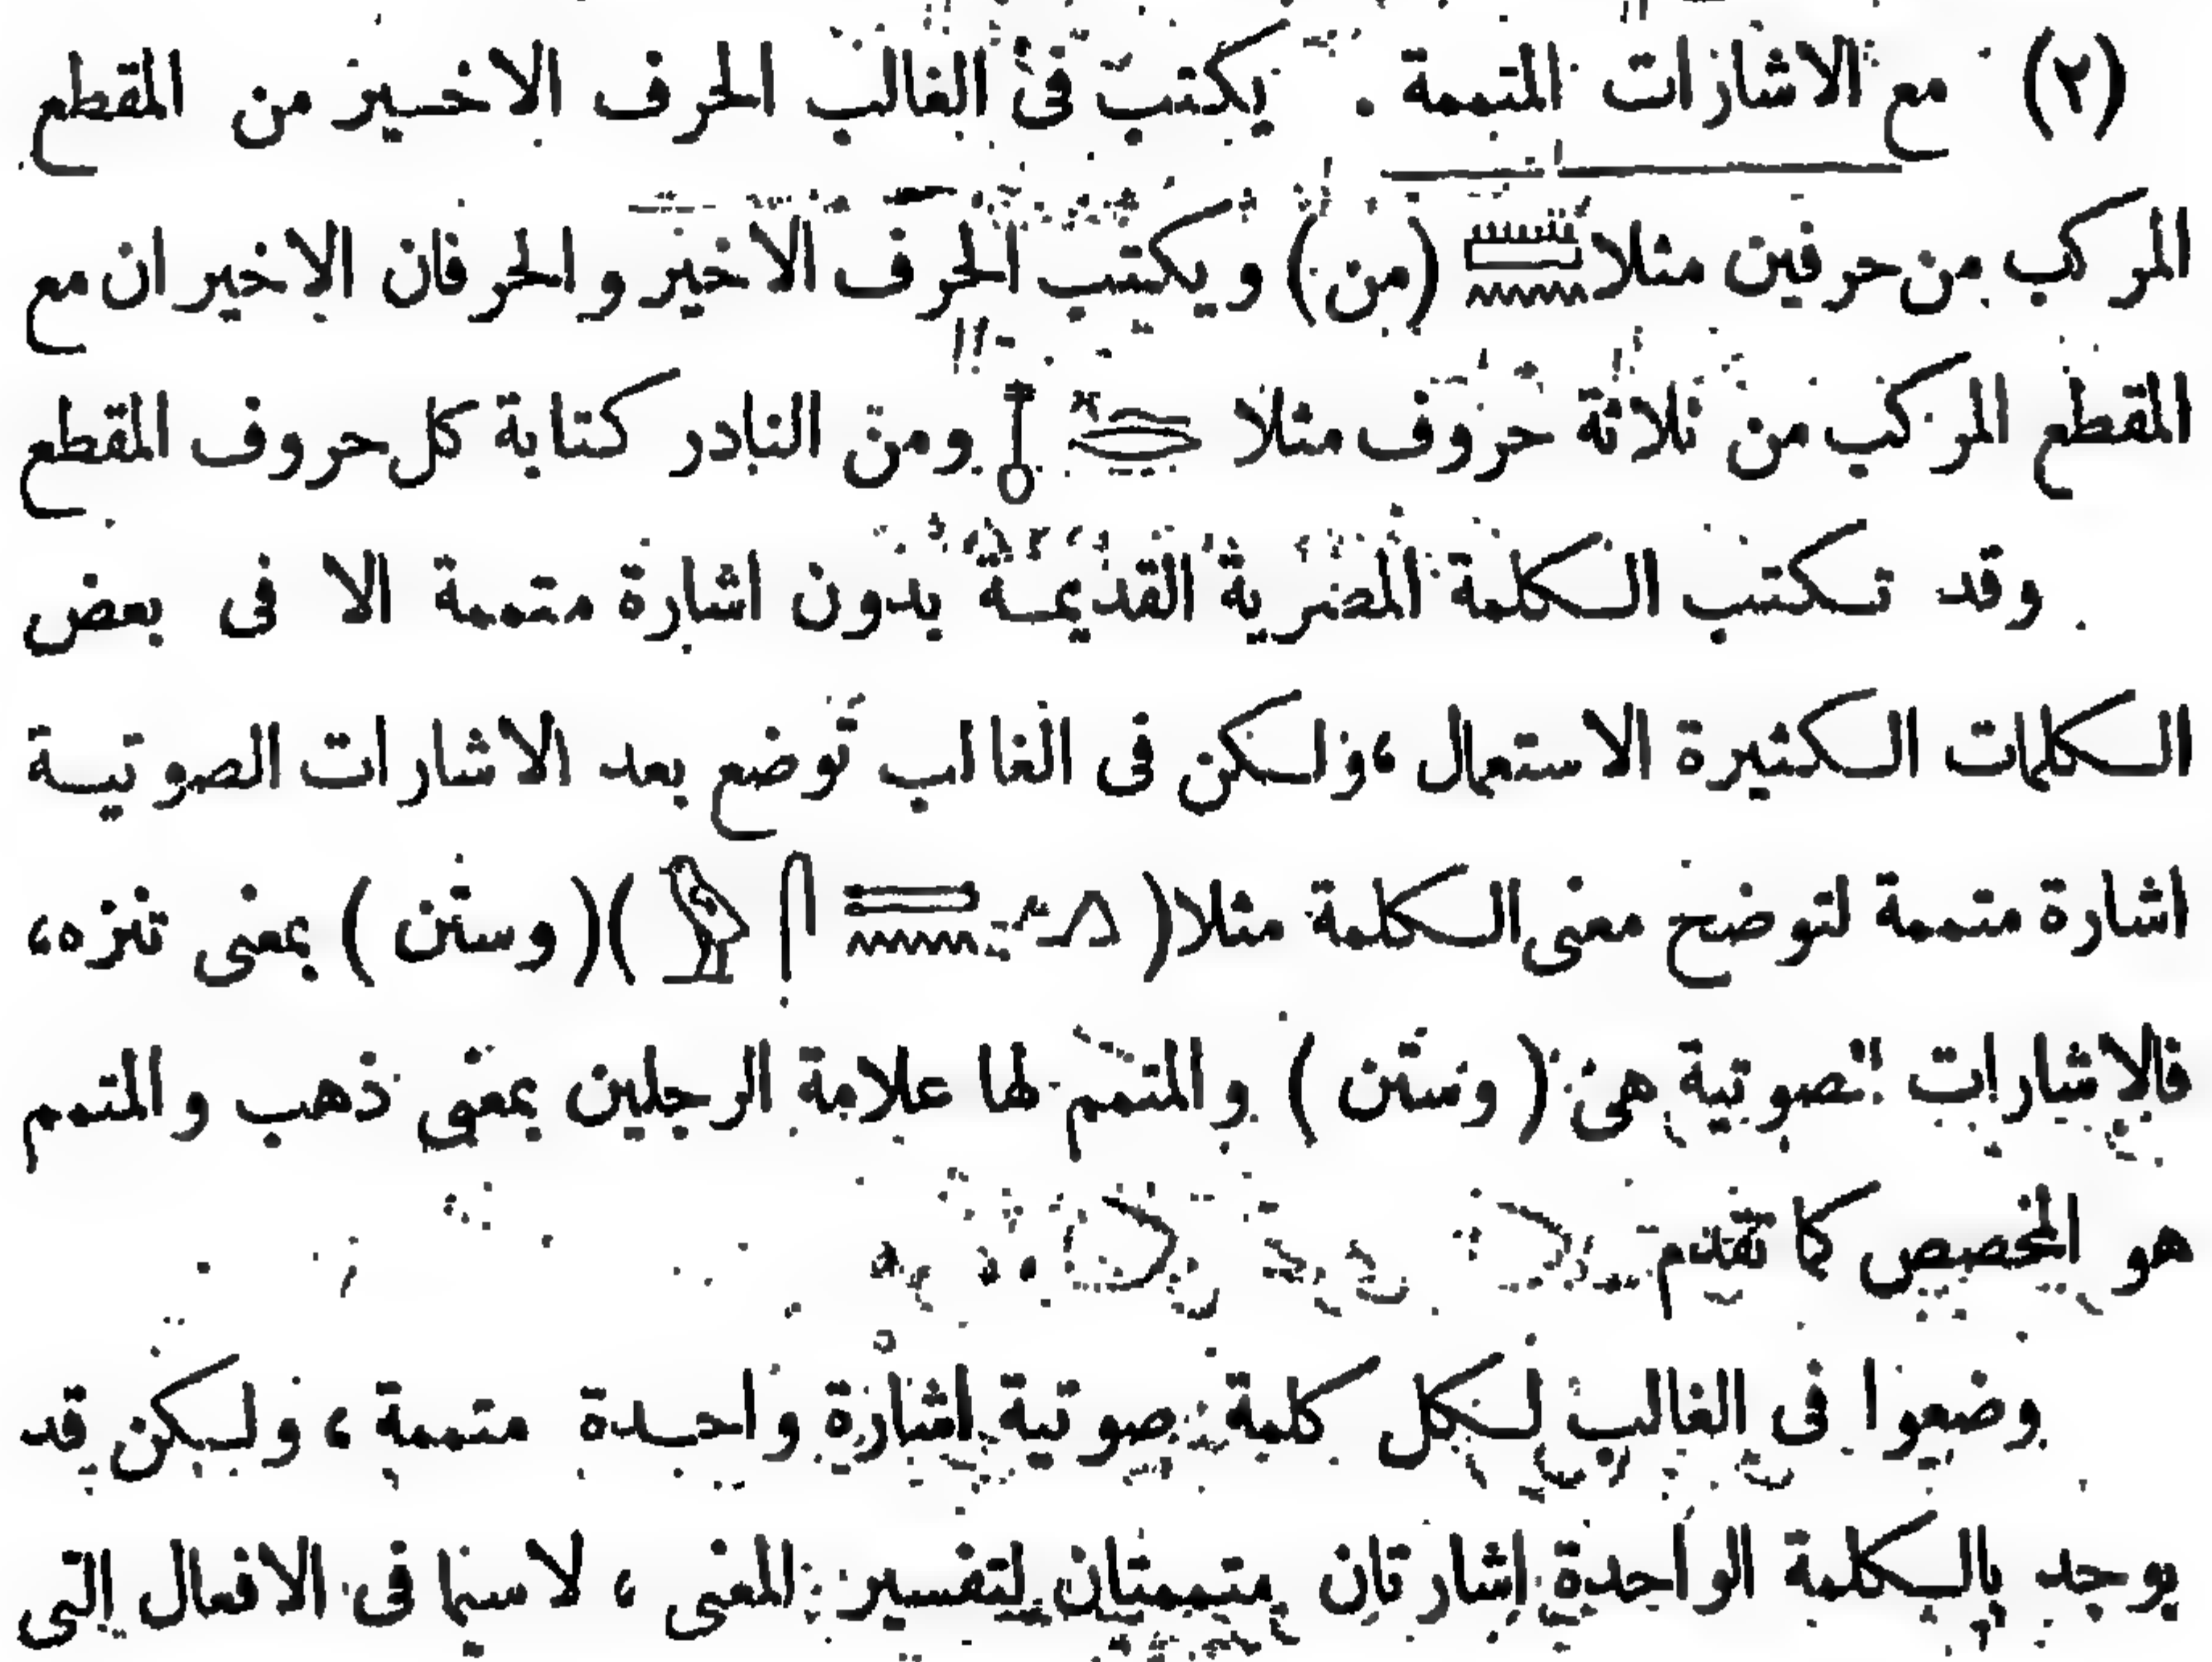 (٢) مع الاشارات المتممة . يكتب فى الغالب الحرف الاخير من المقطع
المركب من حرفين مثلا 𓏠𓈖 (من) ويكتب الحرف الاخير والحرفان الاخيران مع
المقطع المركب من ثلاثة حروف مثلا 𓄤 ومن النادر كتابة كل حروف المقطع
وقد تكتب الكلمة المصرية القديمة بدون اشارة متممة الا فى بعض
الكلمات الكثيرة الاستعمال ، ولكن فى الغالب توضع بعد الاشارات الصوتية
اشارة متممة لتوضح معنى الكلمة مثلا ( 𓂻 𓈖 𓋴 𓅱 ) ( وستن ) بمعنى تنزه ،
فالاشارات الصوتية هى ( وستن ) والمتمم لها علامة الرجلين بمعنى ذهب والمتمم
هو المخصص كما تقدم
وضعوا فى الغالب لكل كلمة صوتية اشارة واحدة متممة ، ولكن قد
يوجد بالكلمة الواحدة اشارتان متممتان لتفسير المعنى ، لاسيما فى الافعال التى